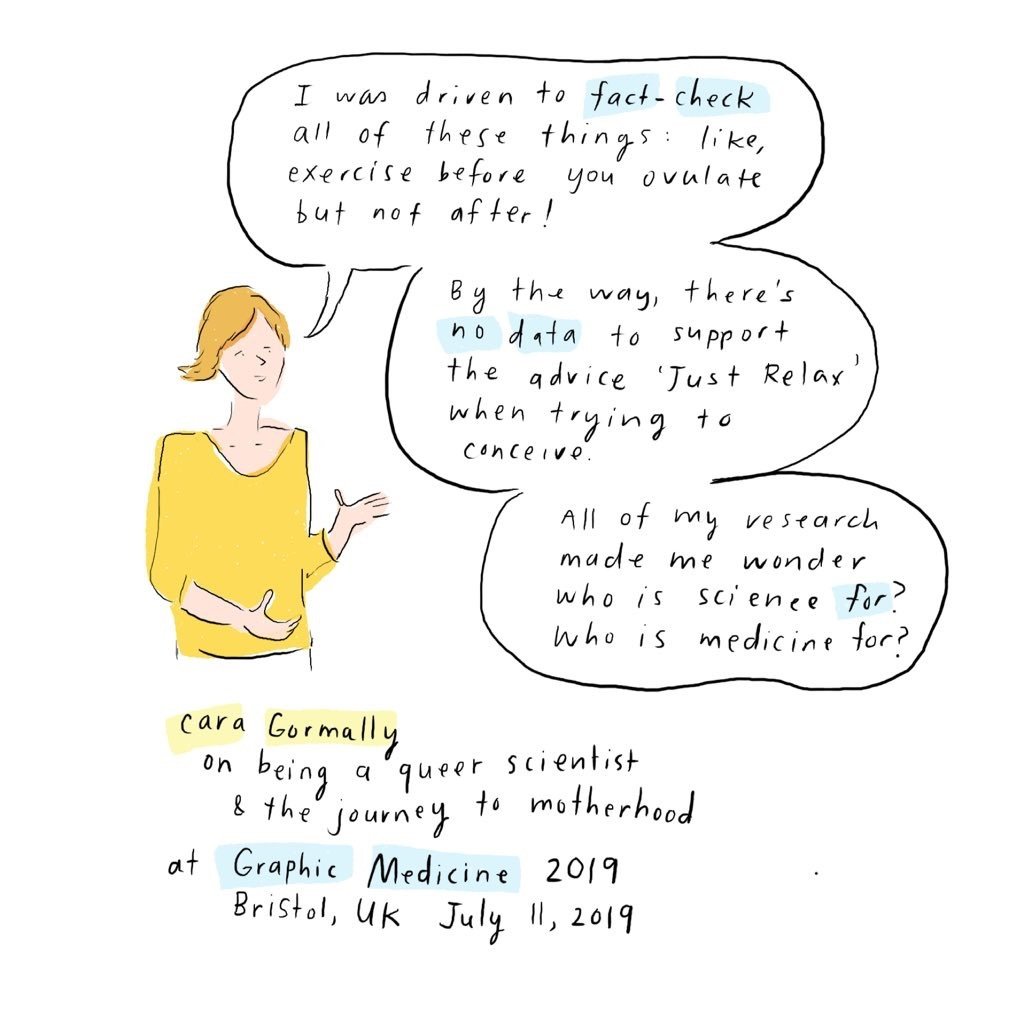 I was driven to fact-check
all of these things: like,
exercise before you ovulate
but not after!
By the way, there's
no data to support
the advice 'Just Relax'
when trying to
conceive.
All of my research
made me wonder
who is science for?
Who is medicine for?
Cara Gormally
on being a queer scientist
& the journey to motherhood
at Graphic Medicine 2019
Bristol, UK July 11, 2019